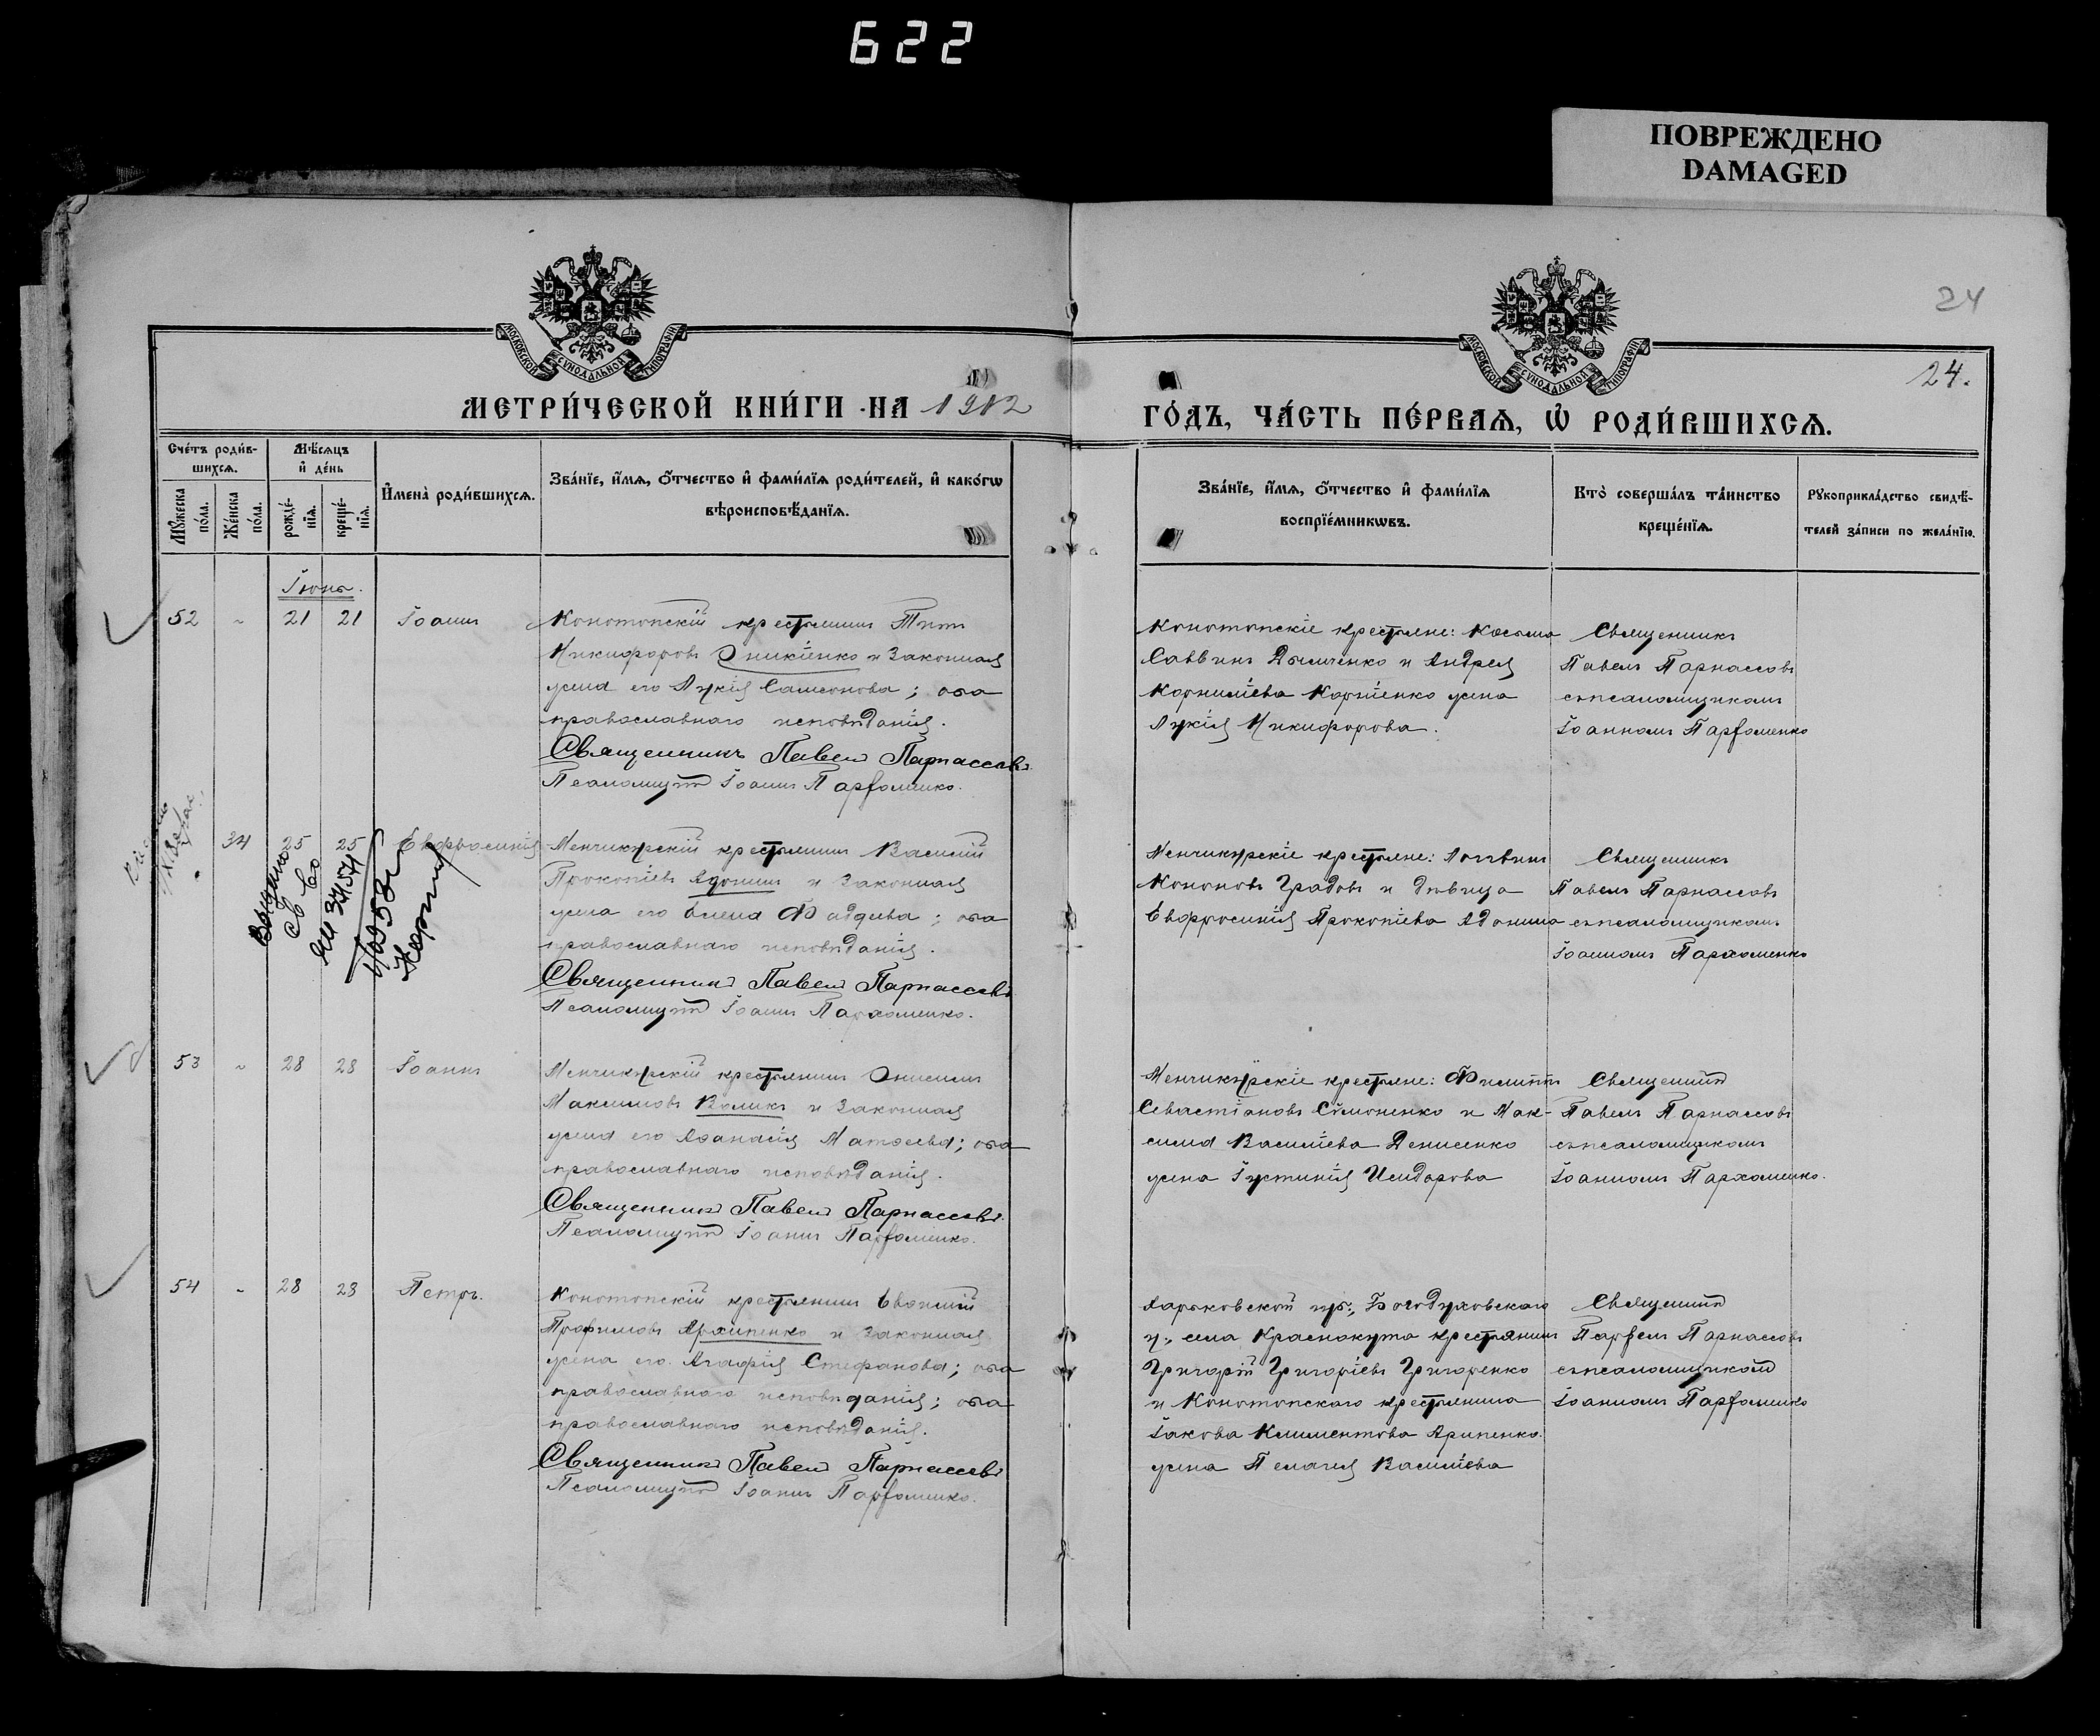 622
ПОВРЕЖДЕНО
DAMAGED
24
24.
МОСКОВСКОЙ СѴНОДАЛЬНОЙ ТИПОГРАФІИ
МОСКОВСКОЙ СѴНОДАЛЬНОЙ ТИПОГРАФІИ
МЕТРИ́ЧЕСКОЙ КНИ́ГИ НА 1912
ГО́ДЪ, ЧА́СТЬ ПЕ́РВАѦ, Ѡ҆ РОДИ́ВШИХСѦ.
Сче́тъ роди́в-
шихсѧ.
Мѣ́сѧцъ
и҆ де́нь
Мꙋ́жеска
по́ла.
Же́нска
по́ла.
рожде́-
нїѧ.
креще́-
нїѧ.
И҆мена̀ роди́вшихсѧ.
Зва́нїе, и҆́мѧ, ѻ҆́тчество и҆ фами́лїѧ роди́телей, и҆ како́гѡ
вѣроисповѣ́данїѧ.
Зва́нїе, и҆́мѧ, ѻ҆́тчество и҆ фами́лїѧ
воспрїе́мникѡвъ.
Кто̀ соверша́лъ та́инство
креще́нїѧ.
Рꙋкоприкла́дство свидѣ́-
телей за́писи по жела́нїю.
Іюнь.
52 " 21 21 Іоаннъ
Конотопскій крестьянинъ Титъ
Никифоровъ Оникіенко и законная
жена его Лукія Самсонова; оба
православнаго исповѣданія.
Священникъ Павелъ Парнассовъ
Псаломщикъ Іоаннъ Пархоменко.
Конотопскіе крестьяне: Косьма
Саввинъ Дымченко и Андрея
Корниліева Корніенко жена
Лукія Никифорова.
Священникъ
Павелъ Парнассовъ
съ псаломщикомъ
Іоанномъ Пархоменко
34 25 25 Евфросинія
Менчикурскій крестьянинъ Василій
Прокопіевъ Адонинъ и законная
жена его Елена Фаддеева; оба
православнаго исповѣданія.
Священникъ Павелъ Парнассовъ
Псаломщикъ Іоаннъ Пархоменко.
Выдано
св во
34154
Менчикурскіе крестьяне: Логвинъ
Кононовъ Градовъ и дѣвица
Евфросинія Прокопіева Адонина
Священникъ
Павелъ Парнассовъ
съ псаломщикомъ
Іоанномъ Пархоменко
53 " 28 28 Іоаннъ
Менчикурскій крестьянинъ Онисимъ
Максимовъ Воликъ и законная
жена его Аѳанасія Матѳеева; оба
православнаго исповѣданія.
Священникъ Павелъ Парнассовъ.
Псаломщикъ Іоаннъ Пархоменко.
Менчикурскіе крестьяне: Филиппъ
Севастіановъ Симоненко и Мак-
сима Василіева Денисенко
жена Іустинія Исидорова
Священникъ
Павелъ Парнассовъ
съ псаломщикомъ
Іоанномъ Пархоменко.
54 " 28 28 Петръ.
Конотопскій крестьянинъ Евѳимій
Трофимовъ Архипенко и законная
жена его Агафія Стефанова; оба
православнаго исповѣданія; оба
православнаго исповѣданія.
Священникъ Павелъ Парнассовъ
Псаломщикъ Іоаннъ Пархоменко.
Харьковской губ., Богодуховскаго
у., села Краснокута крестьянинъ
Григорій Григоріевъ Григоренко
и Конотопскаго крестьянина
Іакова Климентова Арипенко
жена Пелагія Василіева
Священникъ
Павелъ Парнассовъ
съ псаломщикомъ
Іоанномъ Пархоменко